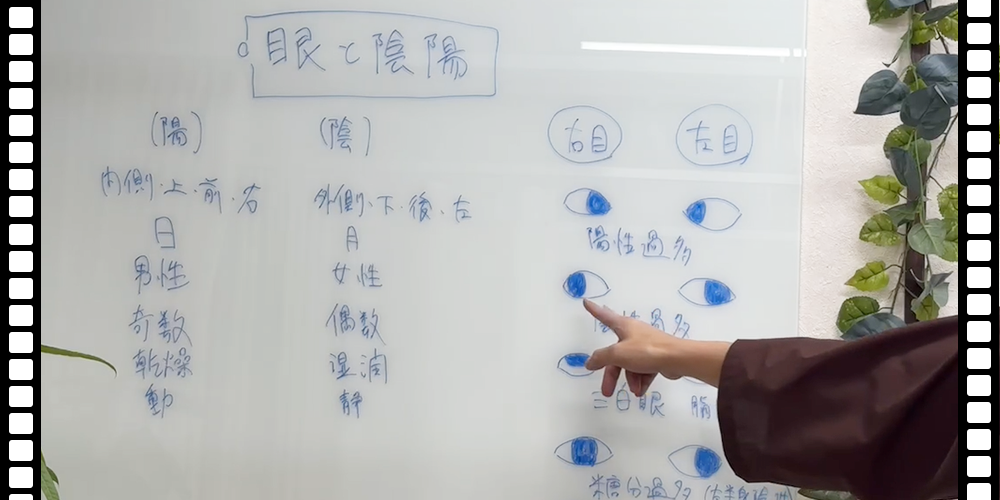 眼と陰陽
(陽) (陰)
内側・上・前・右 外側・下・後・左
日 月
男性 女性
奇数 偶数
乾燥 湿潤
動 静
右目 左目
陽性過多
性過多
三白眼 脳
糖分過多